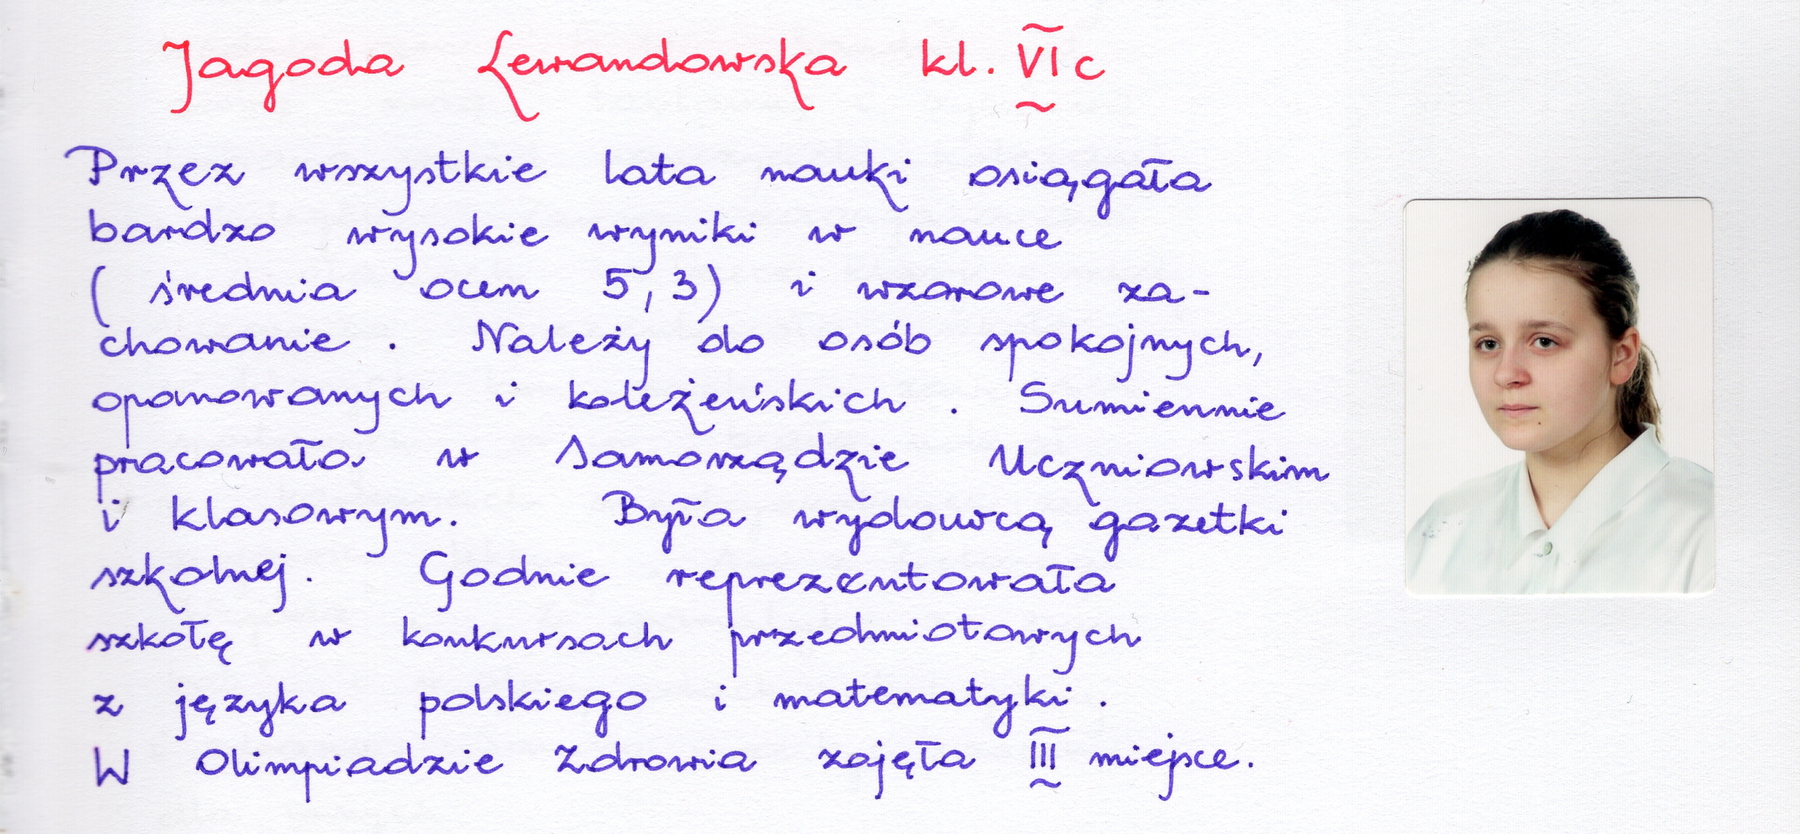 Jagoda Lewandowska kl. VI c
Przez wszystkie lata nauki osiągała
bardzo wysokie wyniki w nauce
( średnia ocen 5,3) i wzorowe za-
chowanie. Należy do osób spokojnych,
opanowanych i koleżeńskich. Sumiennie
pracowała w Samorządzie Uczniowskim
i klasowym. Była wydawcą gazetki
szkolnej. Godnie reprezentowała
szkołę w konkursach przedmiotowych
z języka polskiego i matematyki.
W Olimpiadzie Zdrowia zajęła III miejsce.